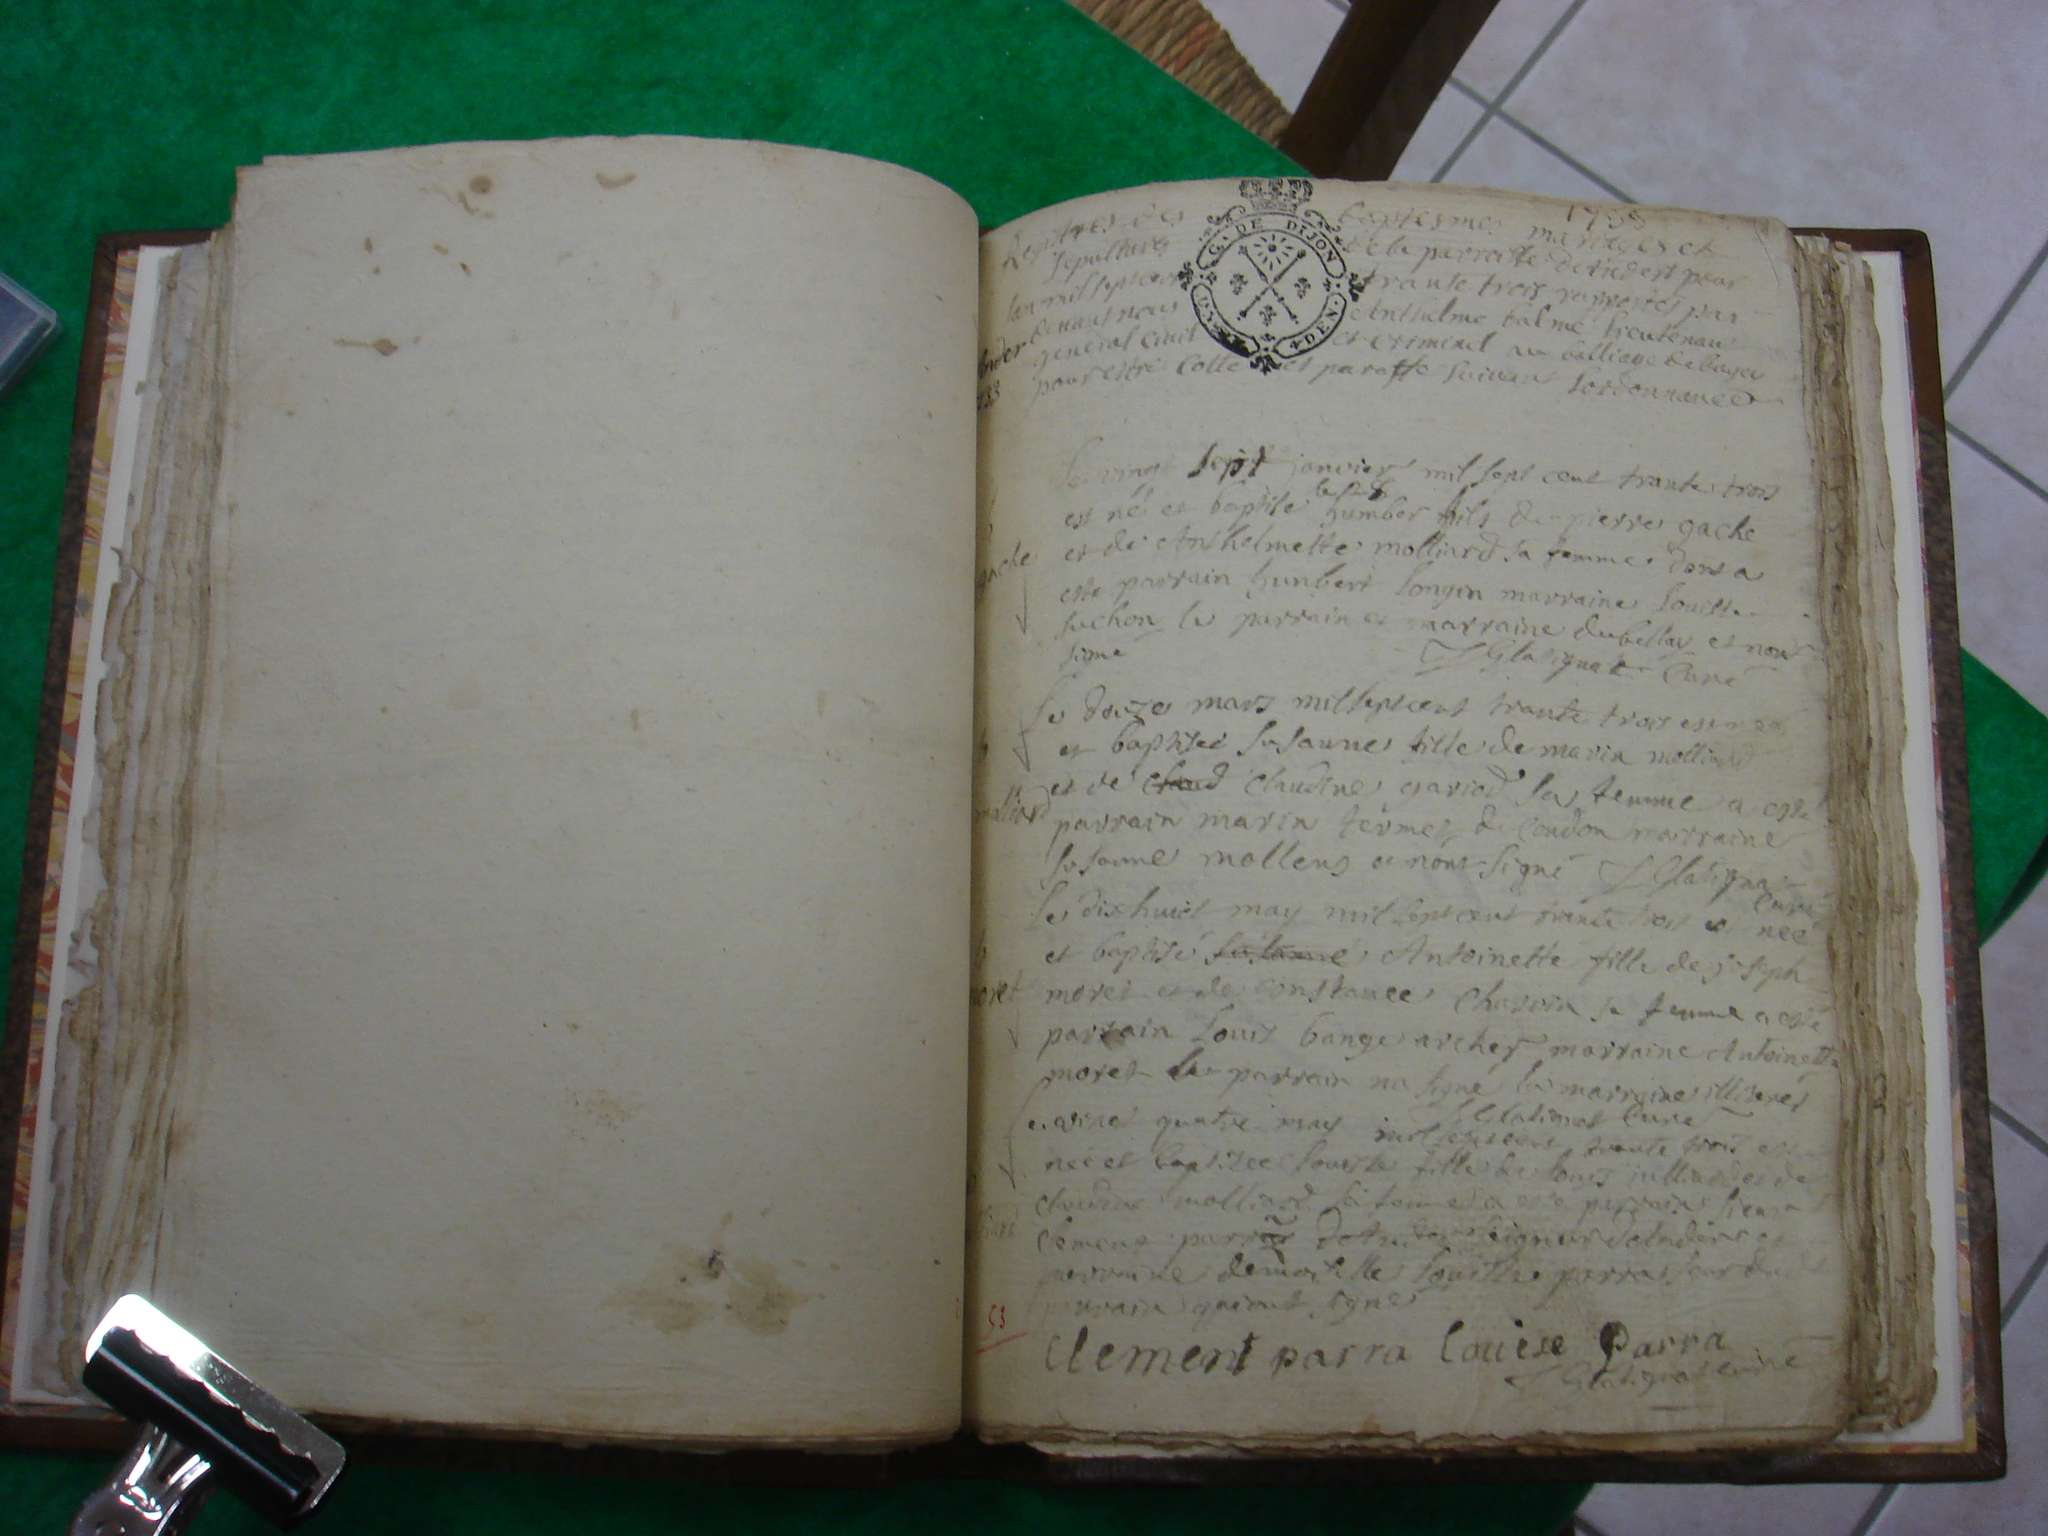 1733
Registres des baptesmes mariages et
sepultures de la parroisse pour
lan mil sept cent trante trois par
devant nous Anthelme balme lieutenant
general civil et criminel au balliage de bugey
pour estre cotté et paraffé suivant lordonnance
G. DE DIJON
DEN
Le vingt sept janvier mil sept cent trante trois
est né et baptise le 28 humber fils de pierre gache
et de Anthelmette molliard sa femme dont a
esté parrain humbert longin marraine louise
suchon le parrain et marraine et nont
signé Glatignat Curé
gache
Le douze mars mil sept cent trante trois est née
et baptisée susanne fille de marin molliard
et de claud claudine gariod sa femme a esté
parrain marin termet de condon marraine
susanne mollens et nont signé Glatignat
Curé
molliard
Le dixhuict may mil sept cent trante trois est née
et baptisé susanne Antoinette fille de joseph
moret et de constance sa femme a esté
parrain Louis bange archer marraine Antoinette
moret le parrain na signé la marraine illiterés
Glatignat Curé
moret
quatre may mil sept cent trante trois est
née et baptisee louise fille de louis julliard et de
claudine molliard sa femme a esté parrain sieur
Clement parra
marraine demoiselle louise parra seur du
parrain qui ont signé
53
Clement parra Louise Parra
Glatignat curé